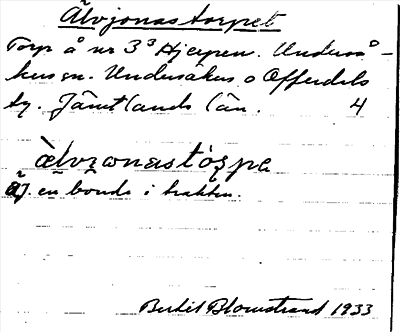 Älvjonastorpet
Torp å nr 3³ Hjerpen. Underså-
kers sn. Undersåkers o Offerdals
tg. Jämtlands län. 4
älvɪonastɔ̀rpa
ÄJ. en bonde i trakten.
Bertil Blomstrand 1933